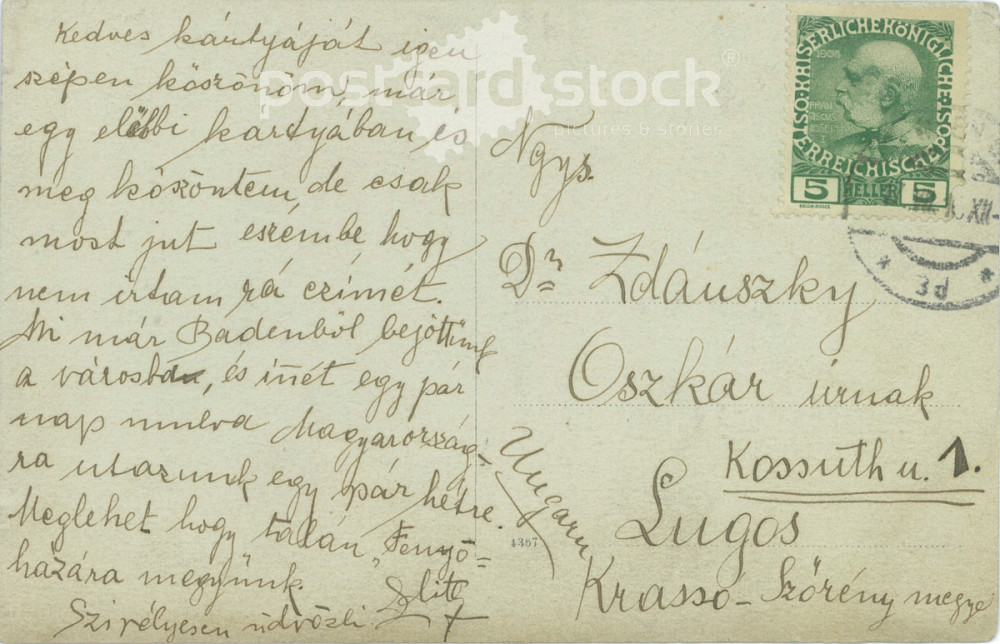 Kedves kártyáját igen
szépen köszönöm, már
egy elébbi kartyában is
meg köszöntem, de csak
most jut eszembe hogy
nem irtam rá czímét.
Mi már Badenből bejöttünk
a városba, és innét egy pár
nap mulva Magyarország-
ra utazunk egy pár hétre.
Meglehet hogy talán "Fenyő=
házára megyünk.
Szivélyesen üdvözli
Ngys.
Dr Zdáuszky
Oszkár úrnak
Kossuth u. 1.
Lugos
Krassó-Szörény megye
Ungarn
4367
KAISERLICHE KÖNIGLICHE POST
ÖSTERREICHISCHE
1908
5 HELLER 5
XII
* 3d *
postcard stock ®
pictures & stories